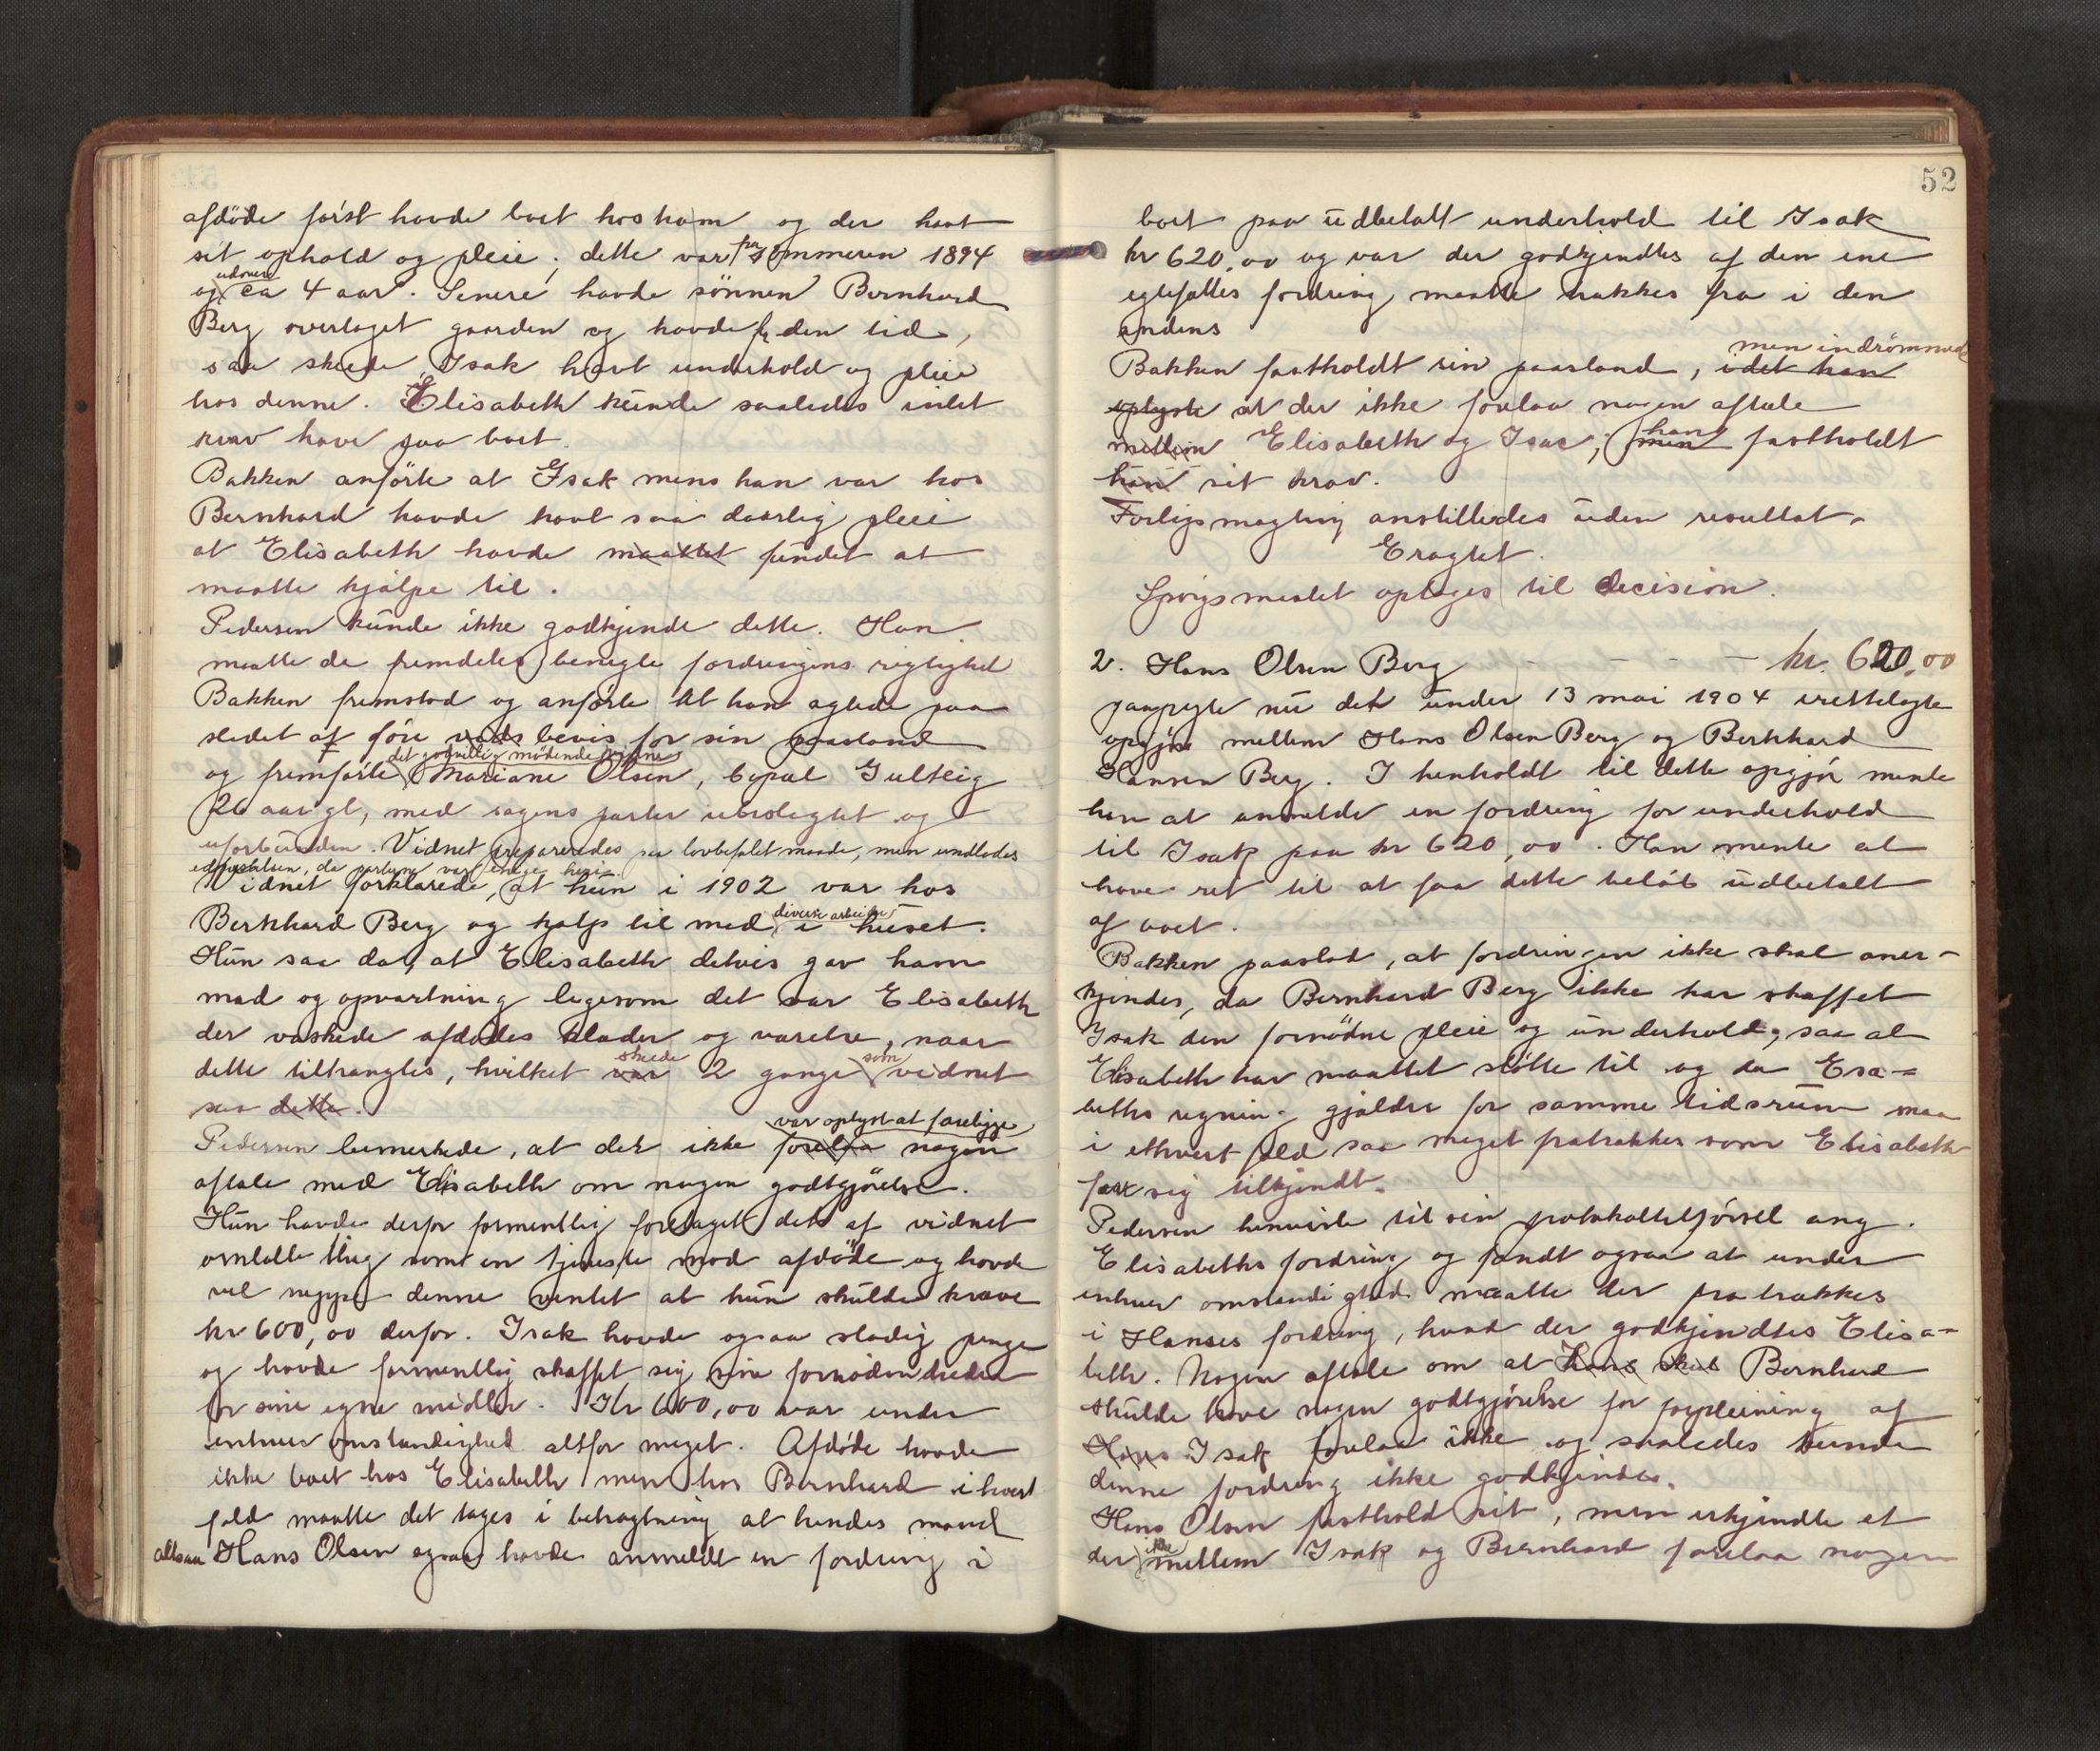 afdöde först havde boet hos ham og der havt
sit ophold og pleie; dette var fra sommeren 1894
og udover ca 4 aar. Senere havde sönnen Bernhard
Berg overtaget gaarden og havde fra den tid,
saa skeede, Isak havt underhold og pleie
hos denne. Elisabeth kunde saaledes intet
krav have paa boet.
Bakken anförte at Isak mens han var hos
Bernhard havde havt saa daarlig pleie
at Elisabeth havde maattet fundet at
maatte hjælpe til.
Pedersen kunde ikke godkjende dette. Han
maatte de fremdeles benegte fordringens rigtighed
Bakken fremstod og anförte at han agtede paa
stedet at före vads bevis for sin paastand
og fremförte det godvillig mödende vidne Mariane Olsen, bopæl Gulteig
26 aar gl, med sagens parter ubeslegtet og
uforbunden. Vidnet præpareredes paa lovbefalet maade, men undlodes
edfæstelsen, da parterne var enige heri.
Vidnet forklarede, at hun i 1902 var hos
Bernhard Berg og hjalp til med diverse arbeide i huset.
Hun saa da, at Elisabeth delvis gav ham
mad og opvartning ligesom det var Elisabeth
der vaskede afdödes klæder og værelse, naar
dette tiltrængtes, hvilket var skeede 2 gange som vidnet
saa dette.
Pedersen bemerkede, at det ikke forelaa var oplyst at foreligge nogen
aftale med Elisabeth om nogen godtgjörelse.
Hun havde derfor formentlig foretaget det af vidnet
omtalte ting som en tjeneste mod afdöde og havde
vel neppe denne ventet at hun skulde kræve
kr 600,00 derfor. Isak havde ogsaa stadig penge
og havde formentlig skaffet sig sine fornödenheder
for sine egne midler. Kr 600,00 var under
enhver omstændighed altfor meget. Afdöde havde
ikke boet hos Elisabeth men hos Bernhard i hvert
fald maatte det tages i betragtning at hendes mand
altsaa Hans Olsen ogsaa havde anmeldt en fordring i
52
boet paa udbetalt underhold til Isak
kr 620,00 og var der godkjendtes af den ene
egtefælles fordring maatte trækkes fra i den
andens
Bakken fastholdt sin paastand, idet han men indrömmede
oplyste at der ikke forelaa nogen aftale
mellem Elisabeth og Isac; men han fastholdt
han sit krav.
Forligsmægling anstilledes uden resultat.
Eragtet.
Spörgsmaalet optages til decision.
2. Hans Olsen Berg - - - - kr. 620,00
paapegte nu det under 13 mai 1904 irettelagte
opgjör mellem Hans Olsen Berg og Bernhard
Hansen Berg. I henholdt til dette opgjör mente
han at anmelde en fordring for underhold
til Isak paa kr 620,00. Han mente at
have ret til at faa dette belöb udbetalt
af boet.
Bakken paastod, at fordringen ikke skal aner-
kjendes, da Bernhard Berg ikke har skaffet
Isak den fornödne pleie og underhold, saa at
Elisabeth har maattet stötte til og da Esa-
beths regning gjælder for samme tidsrum maa
i ethvert fald saa meget fratrækkes som Elisabeth
faar sig tilkjendt.
Pedersen henviste til sin protokoltilförsel ang.
Elisabeths fordring og fandt ogsaa at under
enhver omstændighed maatte der fratrækkes
i Hanses fordring, hvad der godkjendtes Elisa-
beth. Nogen aftale om at Hans skul Bernhard
skulde have nogen godtgjörelse for forpleining af
Hans Isak forelaa ikke og saaledes kunde
denne fordring ikke godkjendes.
Hans Olsen fastholdt sit, men erkjendte at
der ikke mellem Isak og Bernhard forelaa nogen